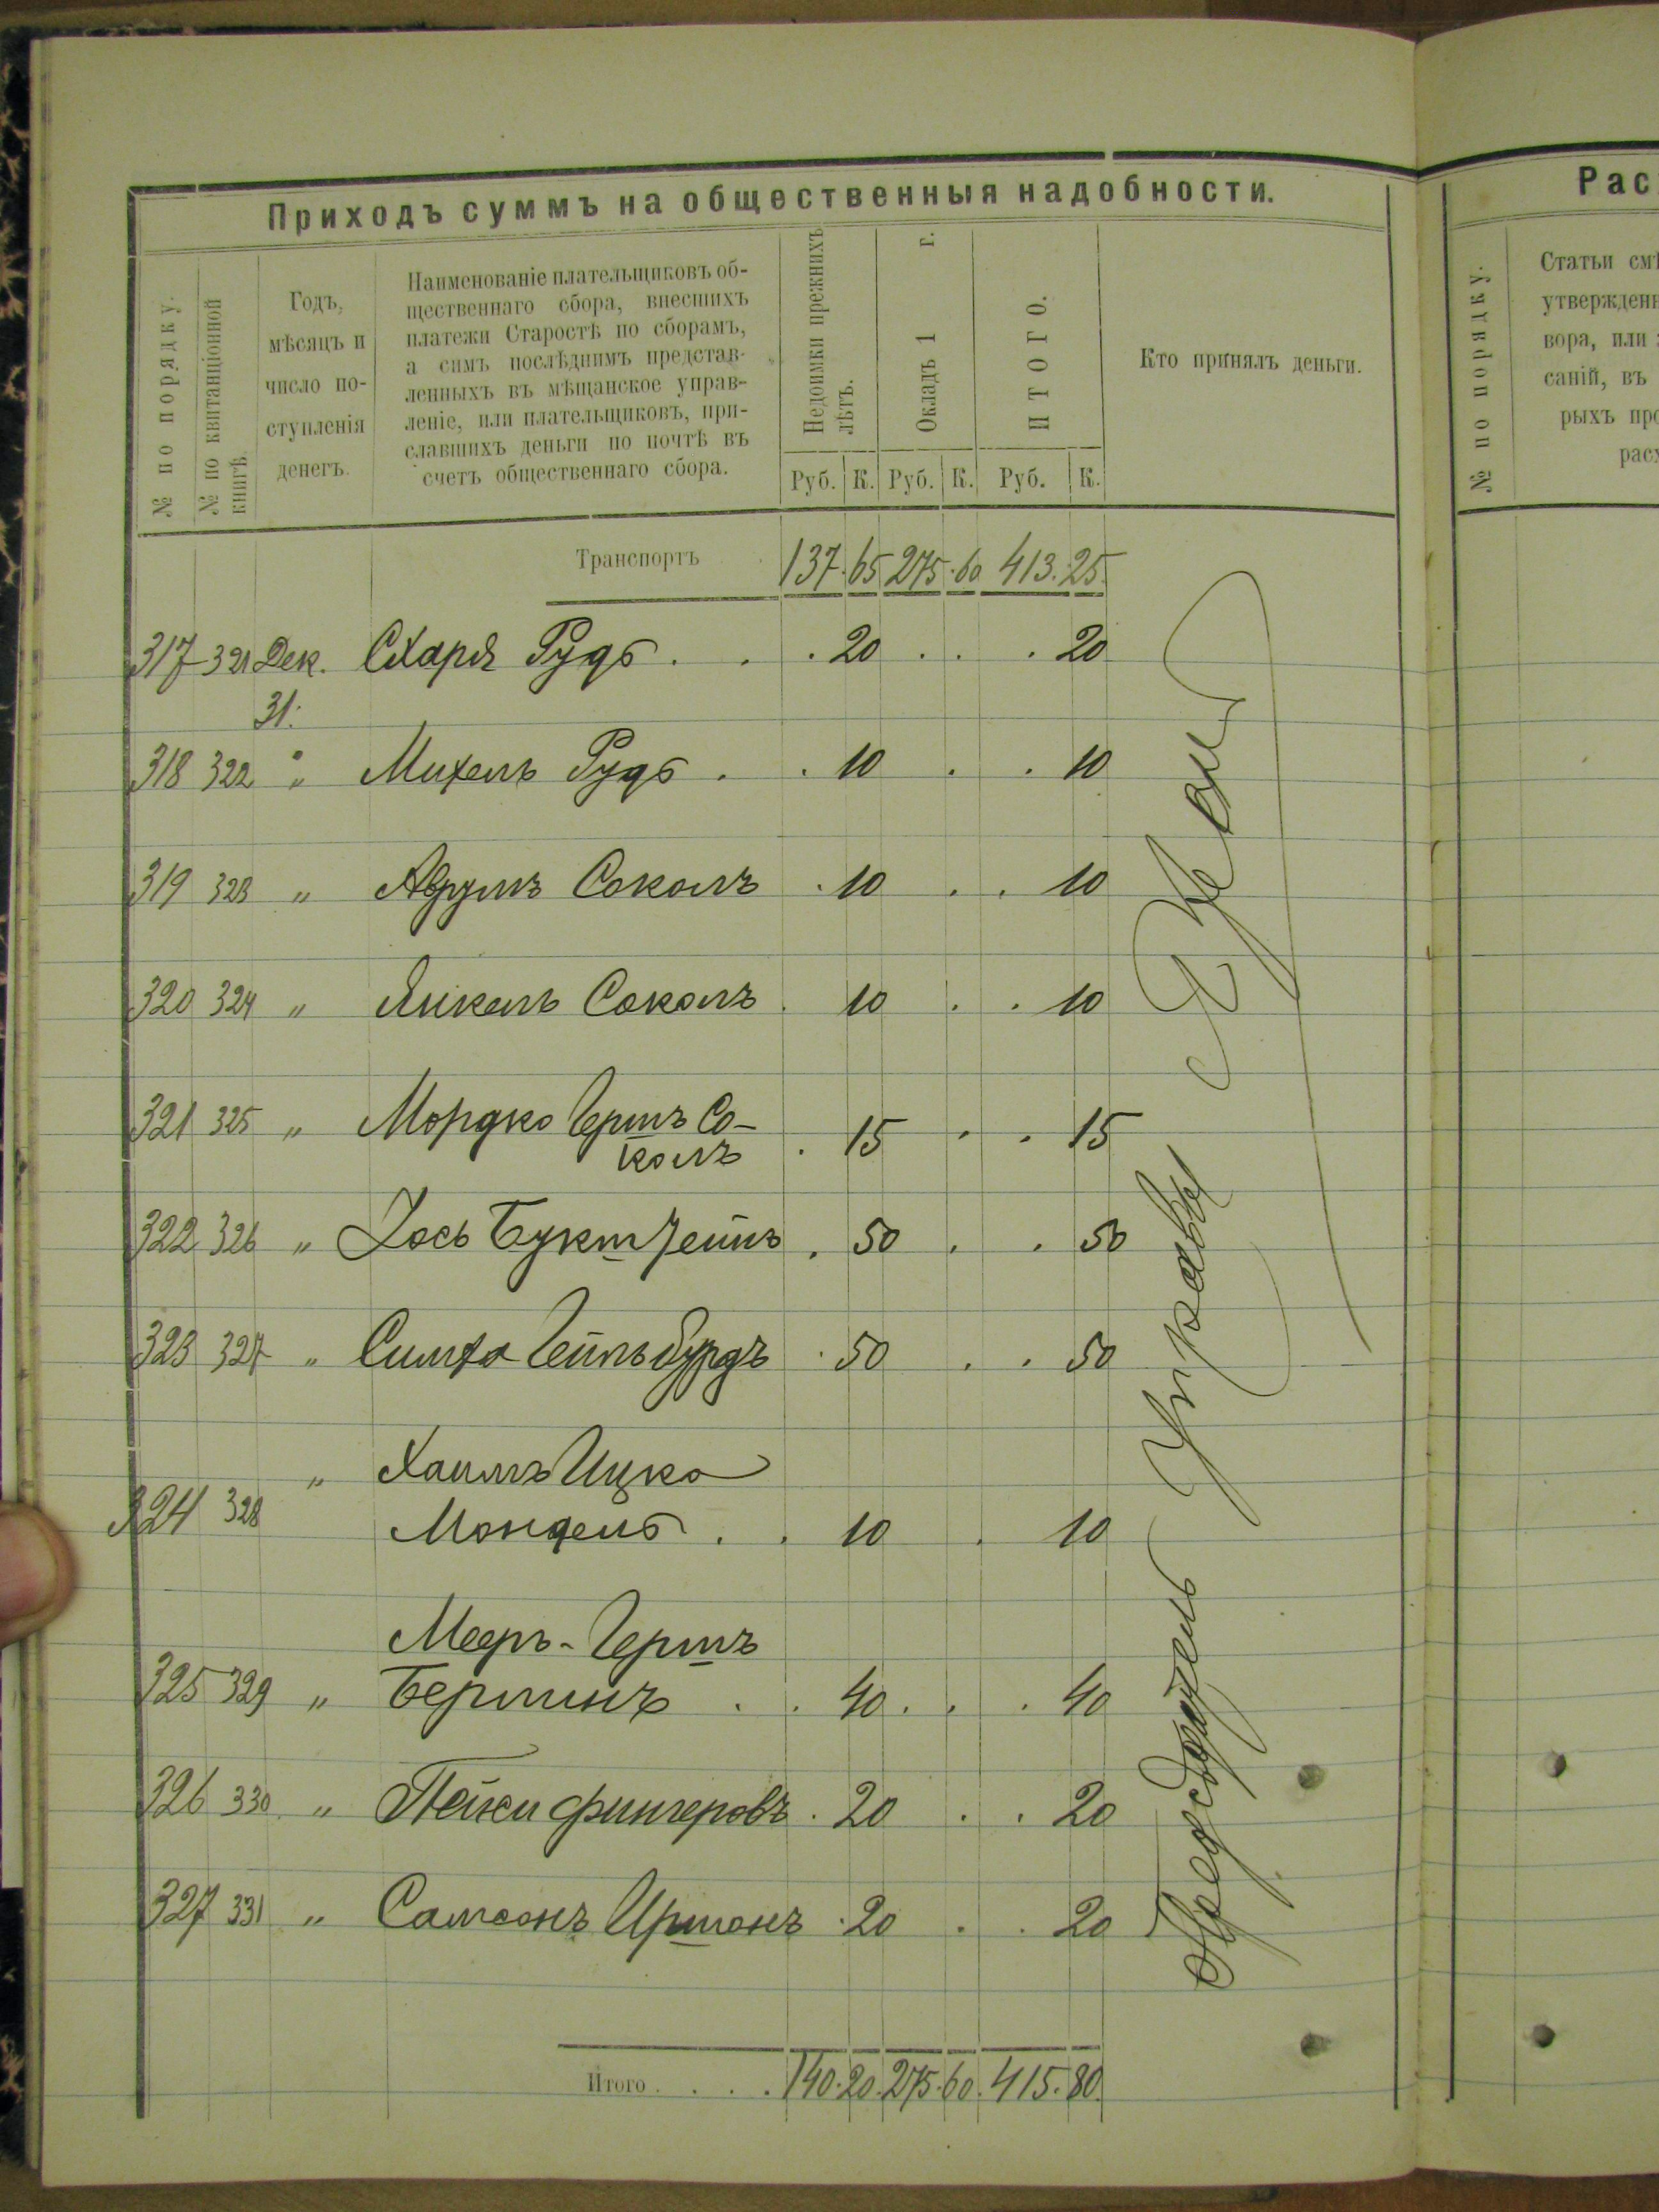 Приходъ суммъ на общественныя надобности.
№ по порядку.
№ по квитанціонной
книгѣ.
Годъ,
мѣсяцъ и
число по-
ступленія
денегъ.
Наименованіе плательщиковъ об-
щественнаго сбора, внесшихъ
платежи Старостѣ по сборамъ,
а симъ послѣднимъ представ-
ленныхъ въ мѣщанское управ-
леніе, или плательщиковъ, при-
славшихъ деньги по почтѣ въ
счетъ общественнаго сбора.
Недоимки прежнихъ
лѣтъ.
Окладъ 1 г.
ИТОГО.
Кто принялъ деньги.
Руб. К. Руб. К. Руб. К.
Транспортъ 137. 65 275. 60 413. 25.
317 321 Дек. Рудь . . . 20 . . . 20
31.
318 322 " Михель Рудь . . 10 . . 10
319 323 " Аврумъ Соколъ . 10 . . 10
320 324 " Янкель Соколъ . 10 . . 10
321 325 " Мордко Гершъ Со-
колъ . 15 . . 15
322 326 " Іось Букштейнъ . 50 . . 50
323 327 " Симха . 50 . . 50
" Хаимъ Ицко
324 328 Мондель . . 10 . 10
Мееръ-Гершъ
325 329 " Берлинъ . . 40 . . . 40
326 330 " Фингеровъ . 20 . . 20
327 331 " Самсонъ Иршонъ . 20 . . 20
Итого . . . . 140. 20. 275. 60. 415. 80.
Предсѣдатель Управы
Рас
№ по порядку.
Статьи см
утвержден
вора, или
саній, въ
рыхъ про
расх